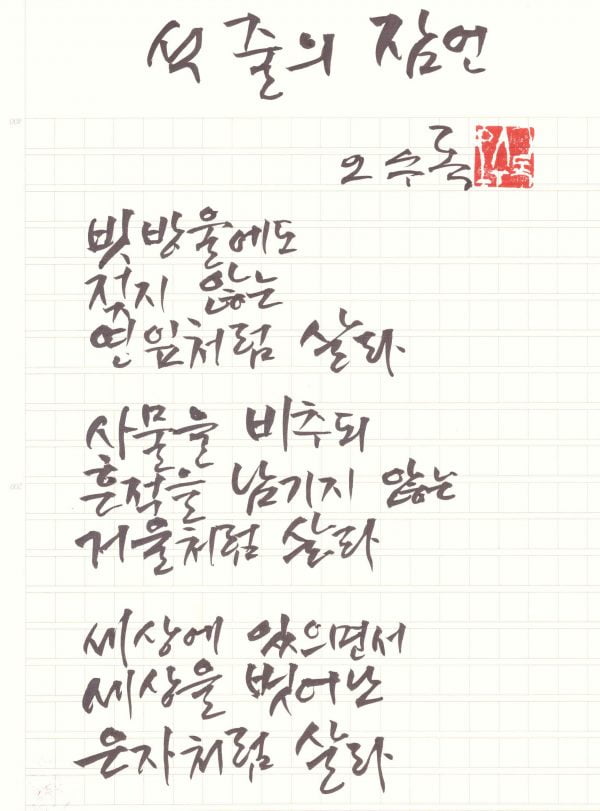 석 줄의 잠언
오수록 오수록
빗방울에도
젖지 않는
연잎처럼 살라
사물을 비추되
흔적을 남기지 않는
거울처럼 살라
세상에 있으면서
세상을 벗어난
은자처럼 살라